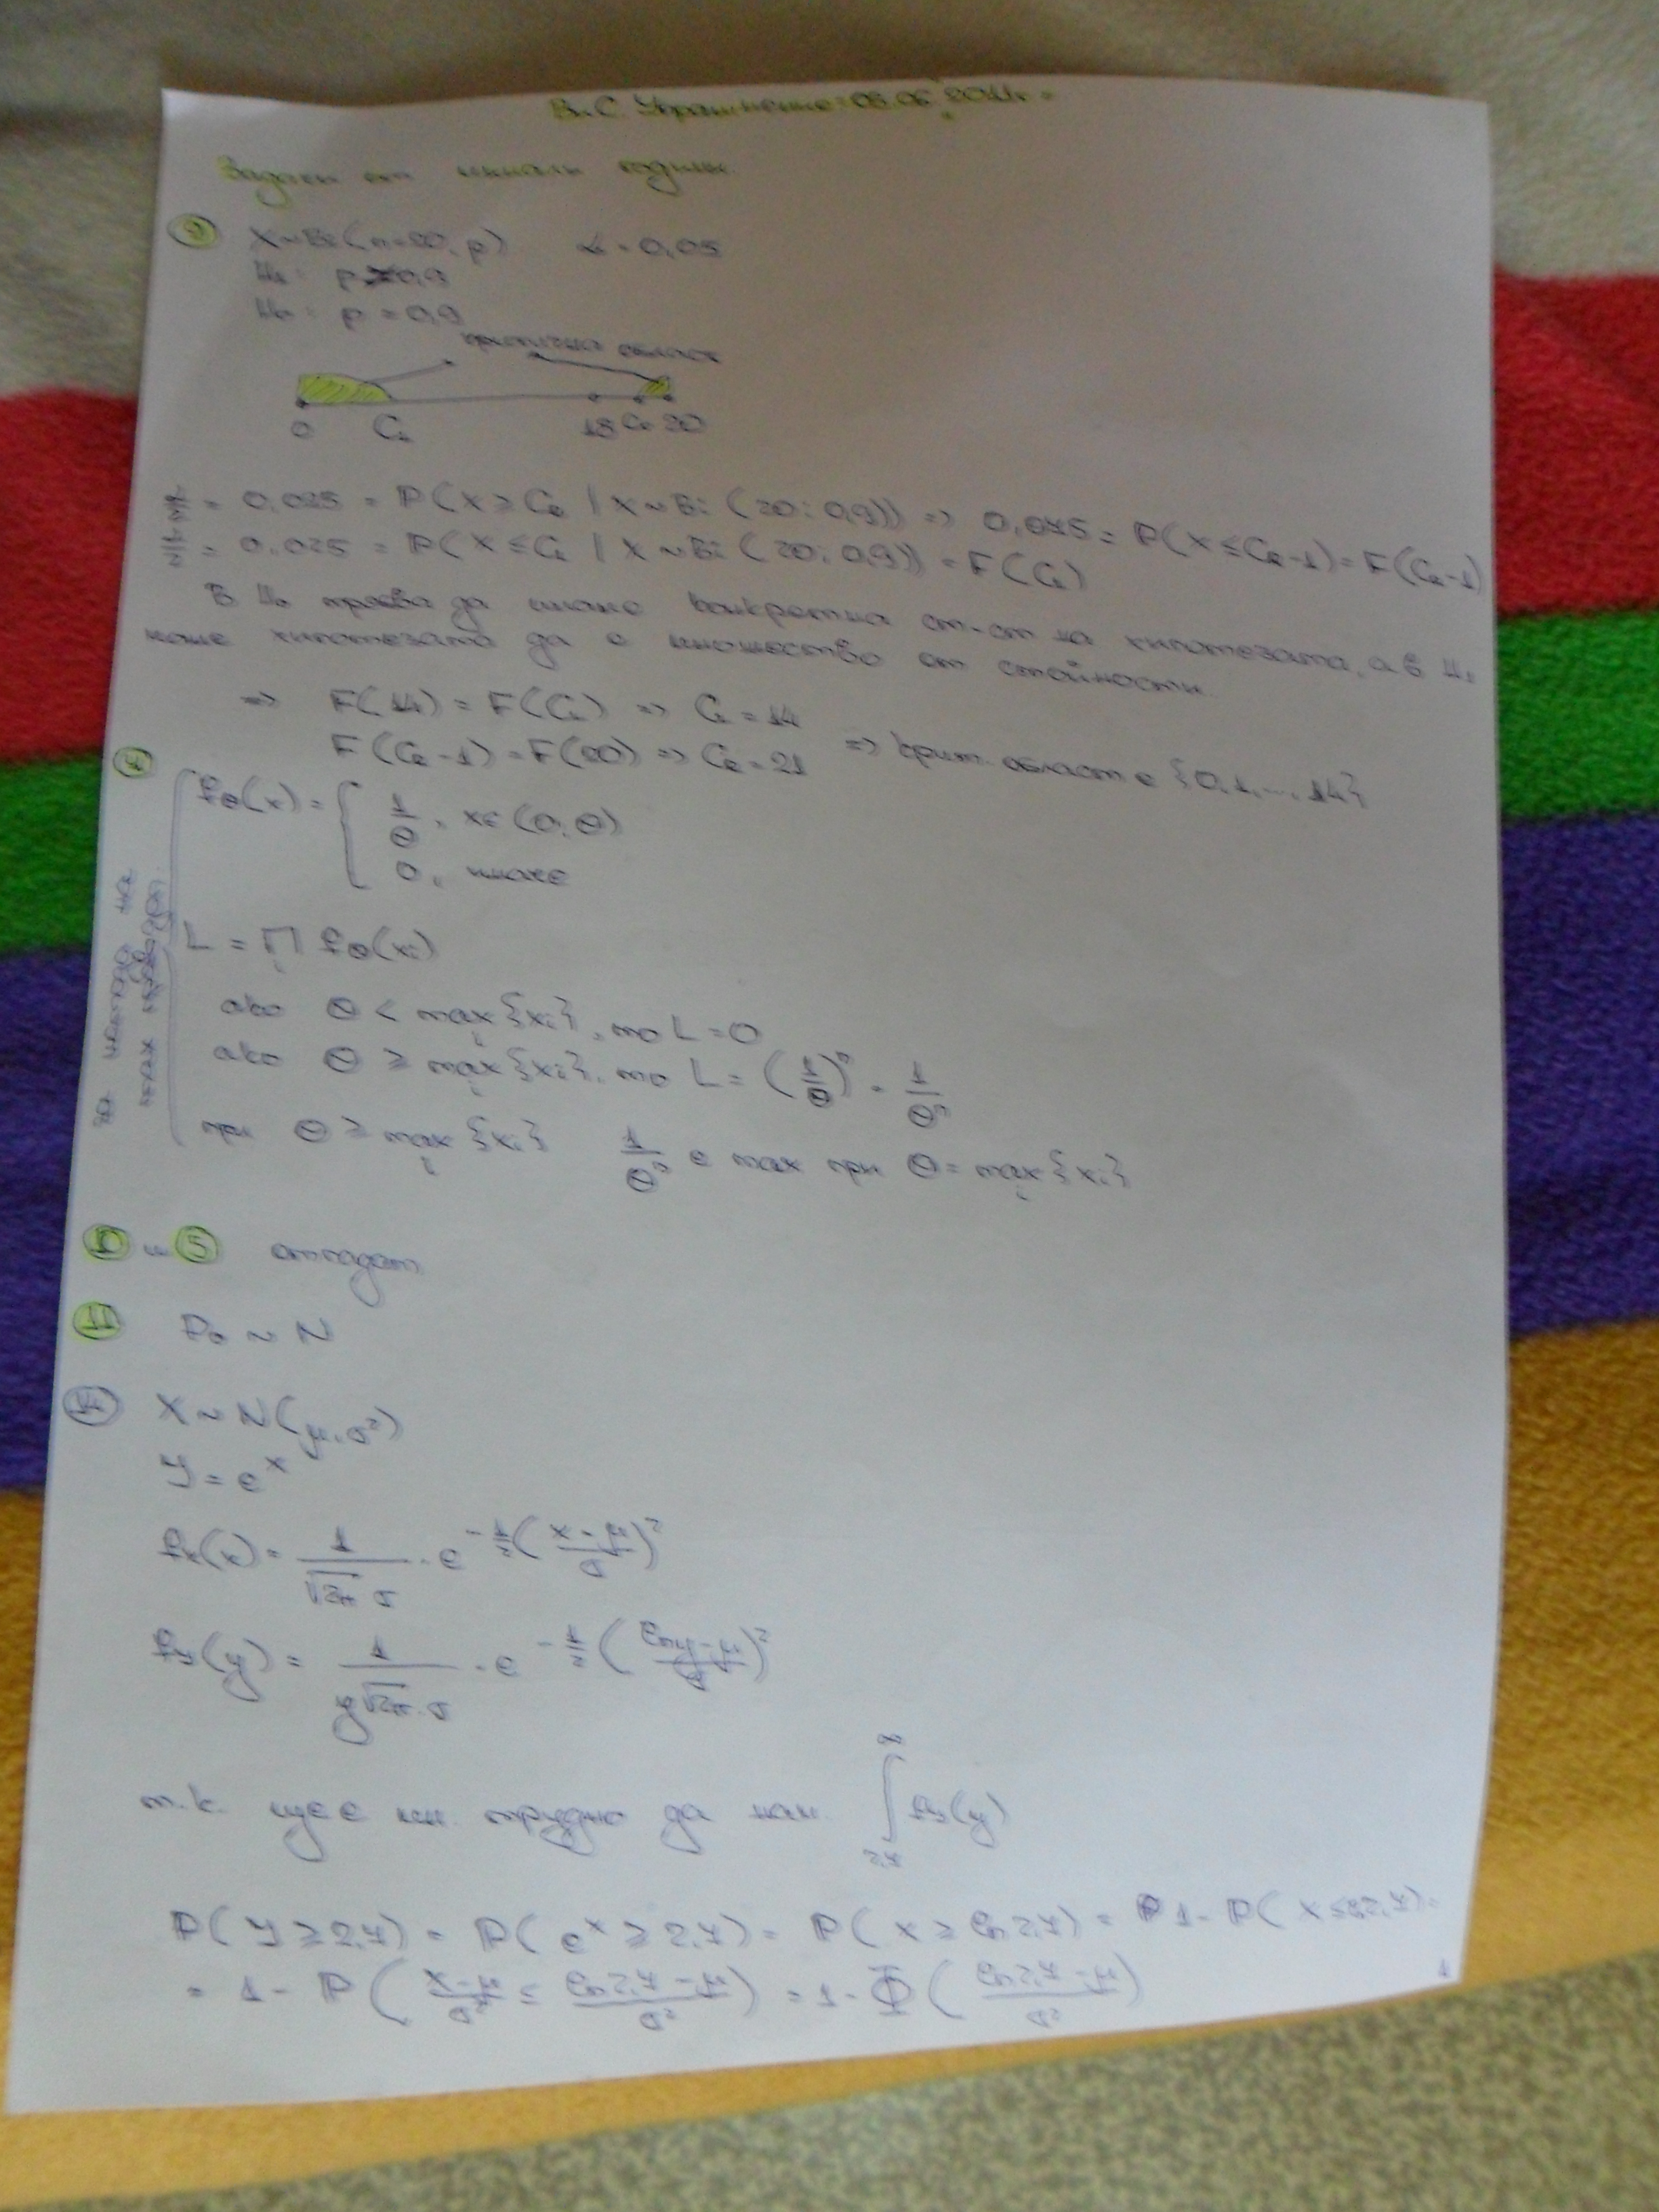 В.С. Упражнение 08.06.2011г.
Задачи от минали години
9 X~Bi(n=20, p) α=0,05
H₁: p≠0,9
H₀: p=0,9
критична област
0 C₁ 18 C₂ 20
α/2 = 0,025 = P(X ≥ C₂ | X~Bi(20; 0,9)) => 0,975 = P(X ≤ C₂-1) = F(C₂-1)
α/2 = 0,025 = P(X ≤ C₁ | X~Bi(20; 0,9)) = F(C₁)
В H₀ трябва да имаме конкретна ст-ст на хипотезата, а в H₁
може хипотезата да е множество от стойности.
=> F(14) = F(C₁) => C₁ = 14
F(C₂-1) = F(20) => C₂ = 21 => крит. област е {0,1,...,14}
7 f_θ(x) = { 1/θ, x∈(0; θ)
0, иначе
L = ∏ f_θ(xᵢ)
ако θ < max{xᵢ}, то L=0
ако θ ≥ max{xᵢ}, то L = (1/θ)ⁿ = 1/θⁿ
при θ ≥ max{xᵢ} 1/θⁿ е max при θ = max{xᵢ}
по метода на
max правдоп.
10 и 5 отпадат
11 P₀ ~ N
14 X~N(μ, σ²)
Y = eˣ
f_x(x) = 1/(√2π σ) · e^(-1/2((x-μ)/σ)²)
f_y(y) = 1/(y√2π·σ) · e^(-1/2((ln y-μ)/σ)²)
т.к. ще е трудно да нам. ∫_{2,7}^{∞} f_y(y)
P(Y ≥ 2,7) = P(eˣ ≥ 2,7) = P(X ≥ ln 2,7) = 1 - P(X ≤ 2,7) =
= 1 - P((X-μ)/σ² ≤ (ln 2,7 -μ)/σ²) = 1 - Φ((ln 2,7 -μ)/σ²)
1